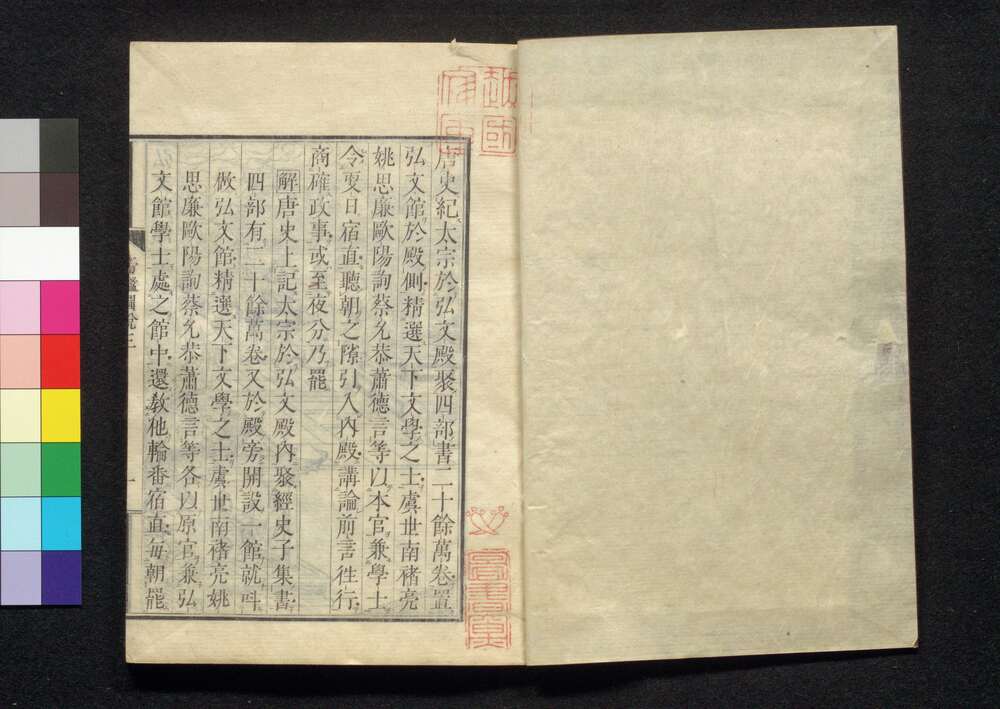 唐史紀太宗於弘文殿聚四部書二十餘萬卷置
弘文館於殿側精選天下文學之士虞世南褚亮
姚思廉歐陽詢蔡允恭蕭德言等以本官兼學士
令更日宿直聽朝之隙引入內殿講論前言徃行
商確政事或至夜分乃罷
解唐史上記太宗於弘文殿內聚經史子集書
四部有二十餘萬卷又於殿旁開設一館就呌
做弘文館精選天下文學之士虞世南褚亮姚
思廉歐陽詢蔡允恭蕭德言等各以原官兼弘
文館學士處之館中還敎他輪畨宿直每朝罷